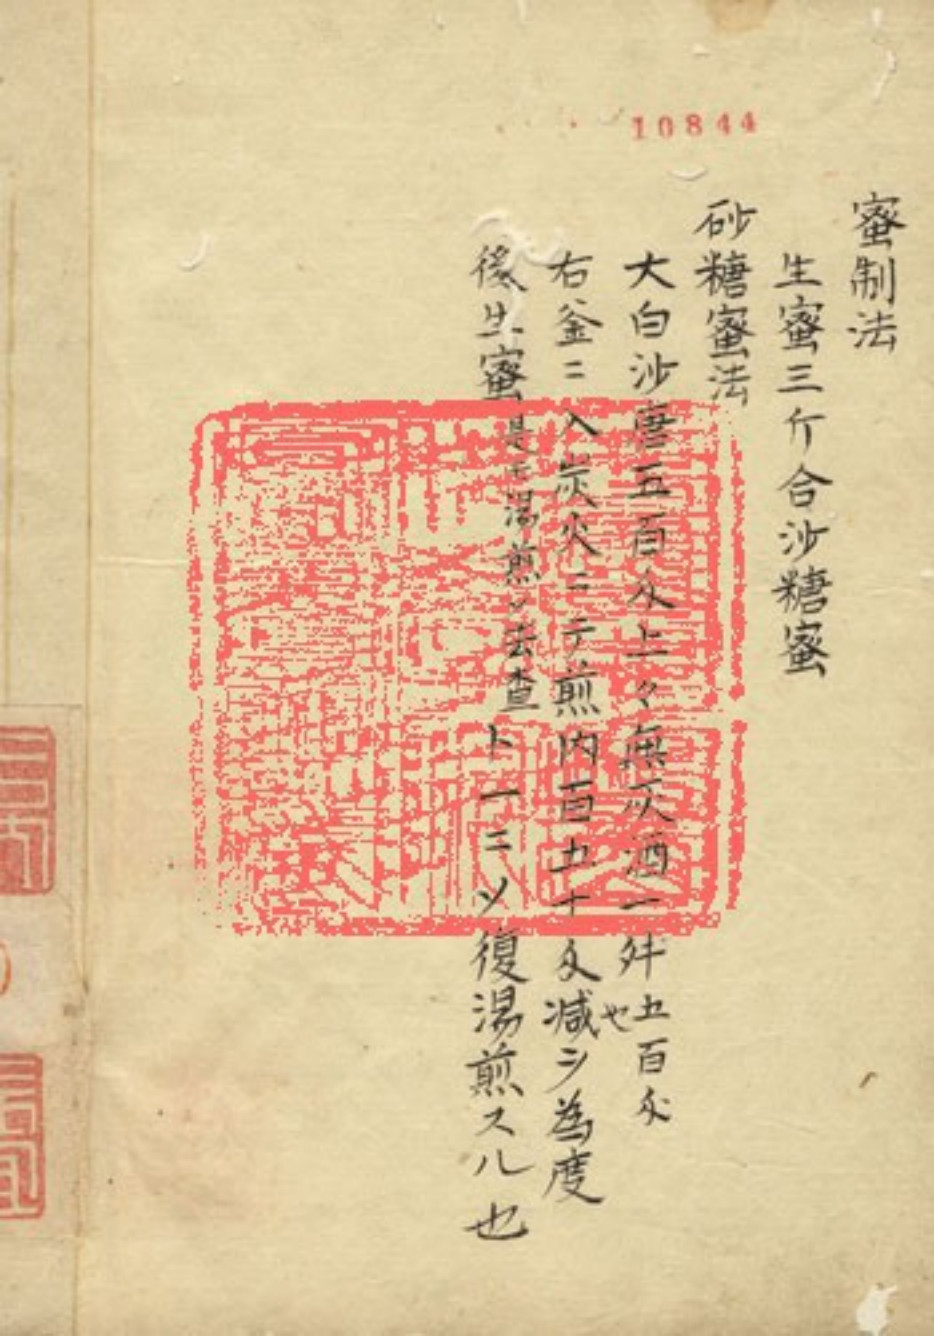 10844
蜜制法
生蜜三斤合沙糖蜜
砂糖蜜法
大白沙唐五百匁上々無灰酒一舛五百匁也
右釜ニ入炭火ニテ煎内百五十匁減シ為度
後生蜜是モ湯煎シ去査ト一ニソ復湯煎スル也